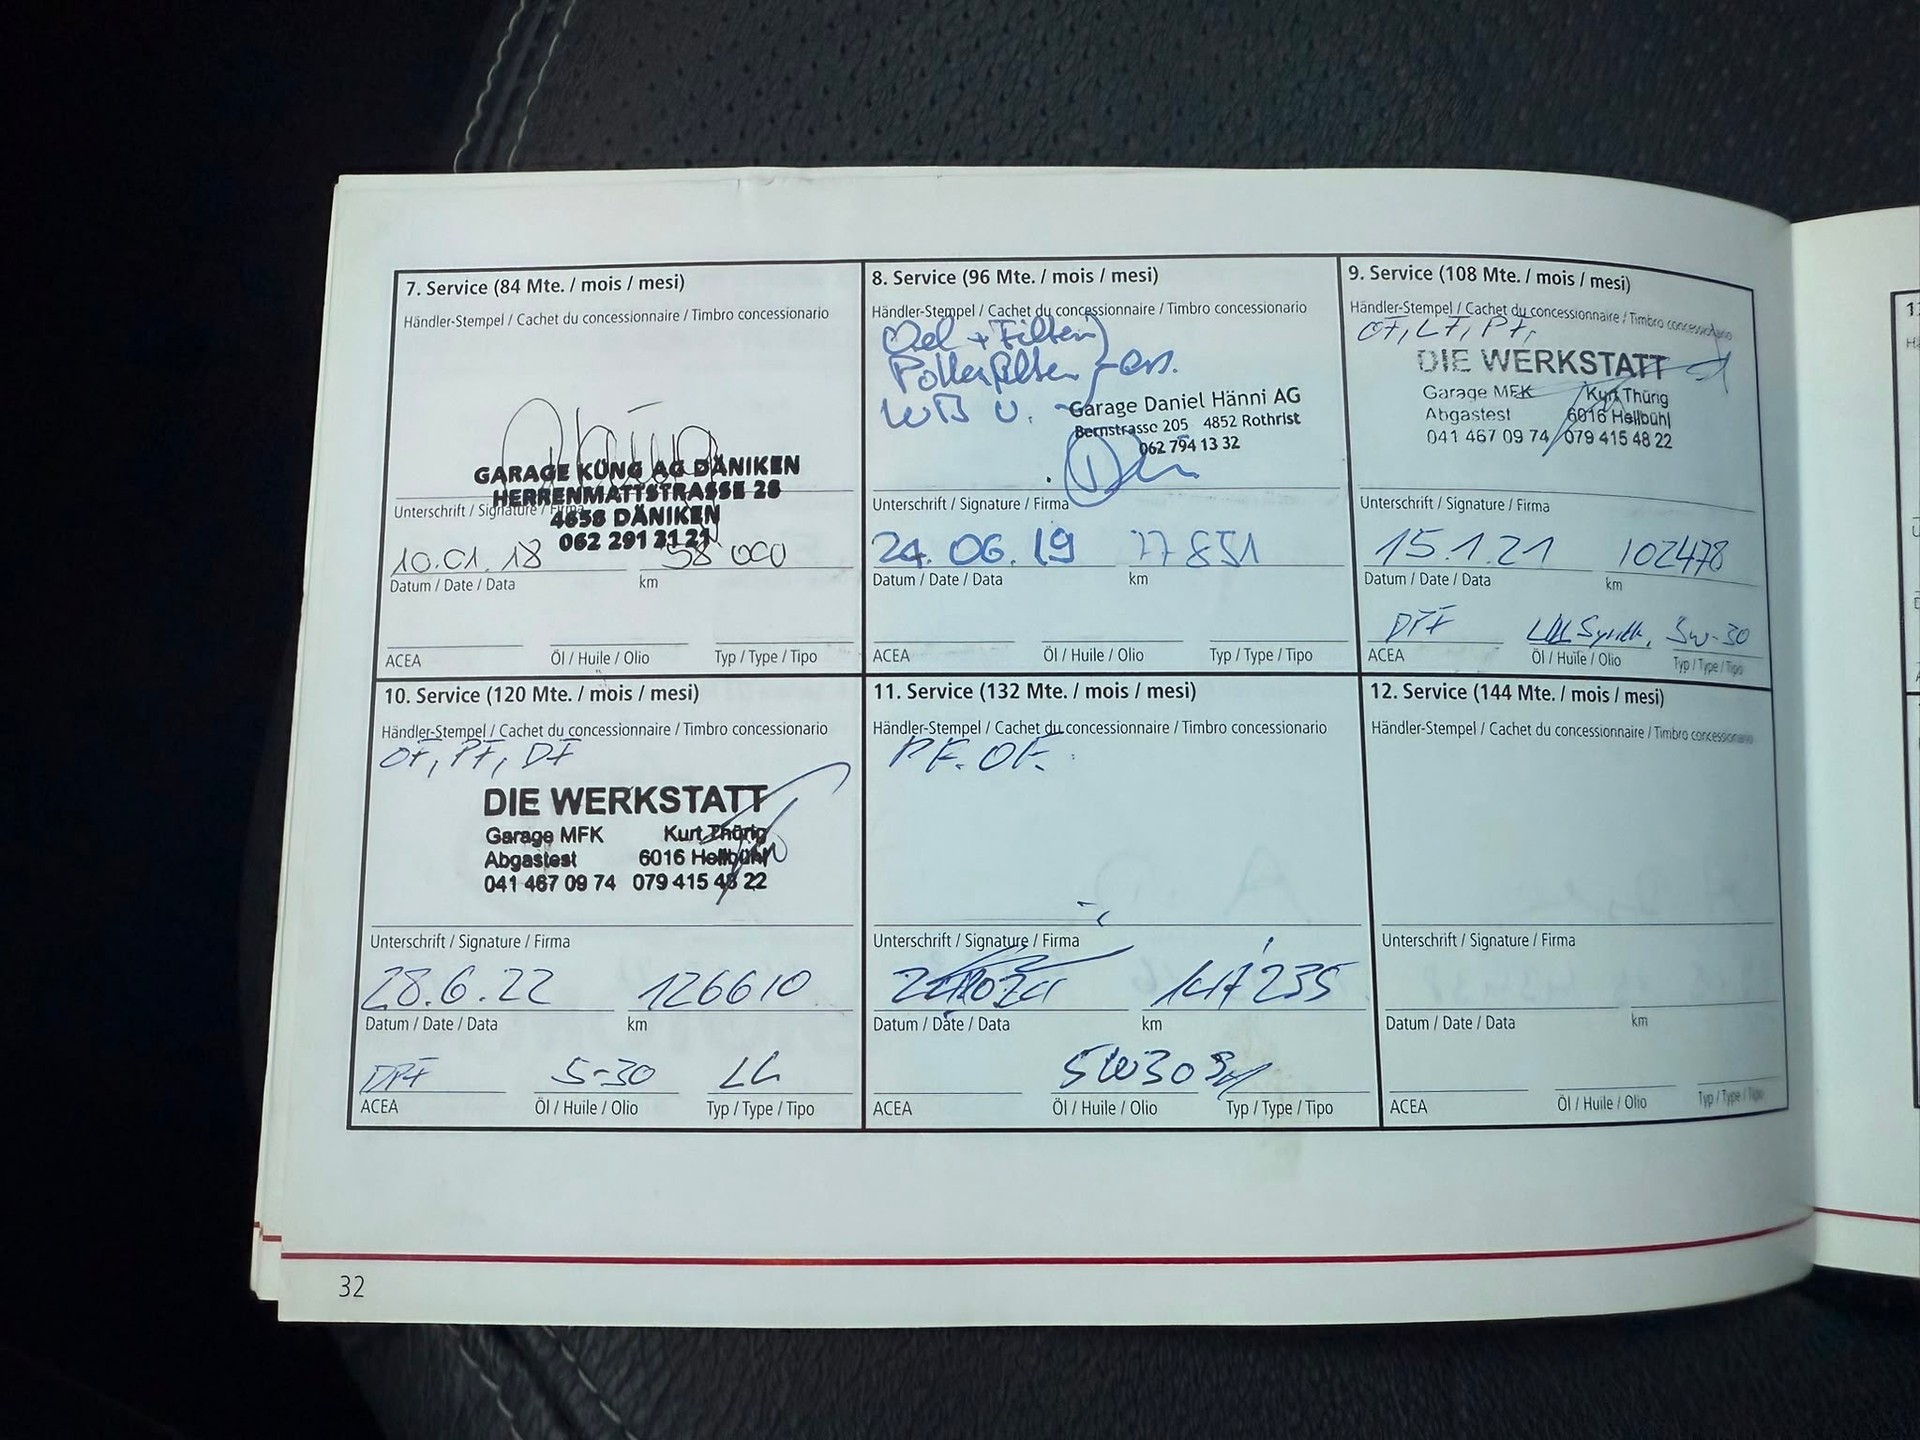 7. Service (84 Mte. / mois / mesi)
Händler-Stempel / Cachet du concessionnaire / Timbro concessionario
GARAGE KÜNG AG DÄNIKEN
HERRENMATTSTRASSE 28
4658 DÄNIKEN
062 291 21 21
Unterschrift / Signature / Firma
10.01.18 58'000
Datum / Date / Data km
ACEA Öl / Huile / Olio Typ / Type / Tipo
8. Service (96 Mte. / mois / mesi)
Händler-Stempel / Cachet du concessionnaire / Timbro concessionario
Oel + Filter
Pollenfilter ers.
Garage Daniel Hänni AG
Bernstrasse 205 4852 Rothrist
062 794 13 32
Unterschrift / Signature / Firma
24.06.19 77851
Datum / Date / Data km
ACEA Öl / Huile / Olio Typ / Type / Tipo
9. Service (108 Mte. / mois / mesi)
Händler-Stempel / Cachet du concessionnaire / Timbro concessionario
OF, LF, PF,
DIE WERKSTATT
Garage MFK Kurt Thürig
Abgastest 6016 Hellbühl
041 467 09 74 079 415 48 22
Unterschrift / Signature / Firma
15.1.21 102478
Datum / Date / Data km
DPF 5w-30
ACEA Öl / Huile / Olio Typ / Type / Tipo
10. Service (120 Mte. / mois / mesi)
Händler-Stempel / Cachet du concessionnaire / Timbro concessionario
OF, PF, DF
DIE WERKSTATT
Garage MFK Kurt Thürig
Abgastest 6016 Hellbühl
041 467 09 74 079 415 48 22
Unterschrift / Signature / Firma
28.6.22 126610
Datum / Date / Data km
DPF 5-30 LL
ACEA Öl / Huile / Olio Typ / Type / Tipo
11. Service (132 Mte. / mois / mesi)
Händler-Stempel / Cachet du concessionnaire / Timbro concessionario
PF. OF.
Unterschrift / Signature / Firma
147'235
Datum / Date / Data km
5W30
ACEA Öl / Huile / Olio Typ / Type / Tipo
12. Service (144 Mte. / mois / mesi)
Händler-Stempel / Cachet du concessionnaire / Timbro concessionario
Unterschrift / Signature / Firma
Datum / Date / Data km
ACEA Öl / Huile / Olio Typ / Type / Tipo
32